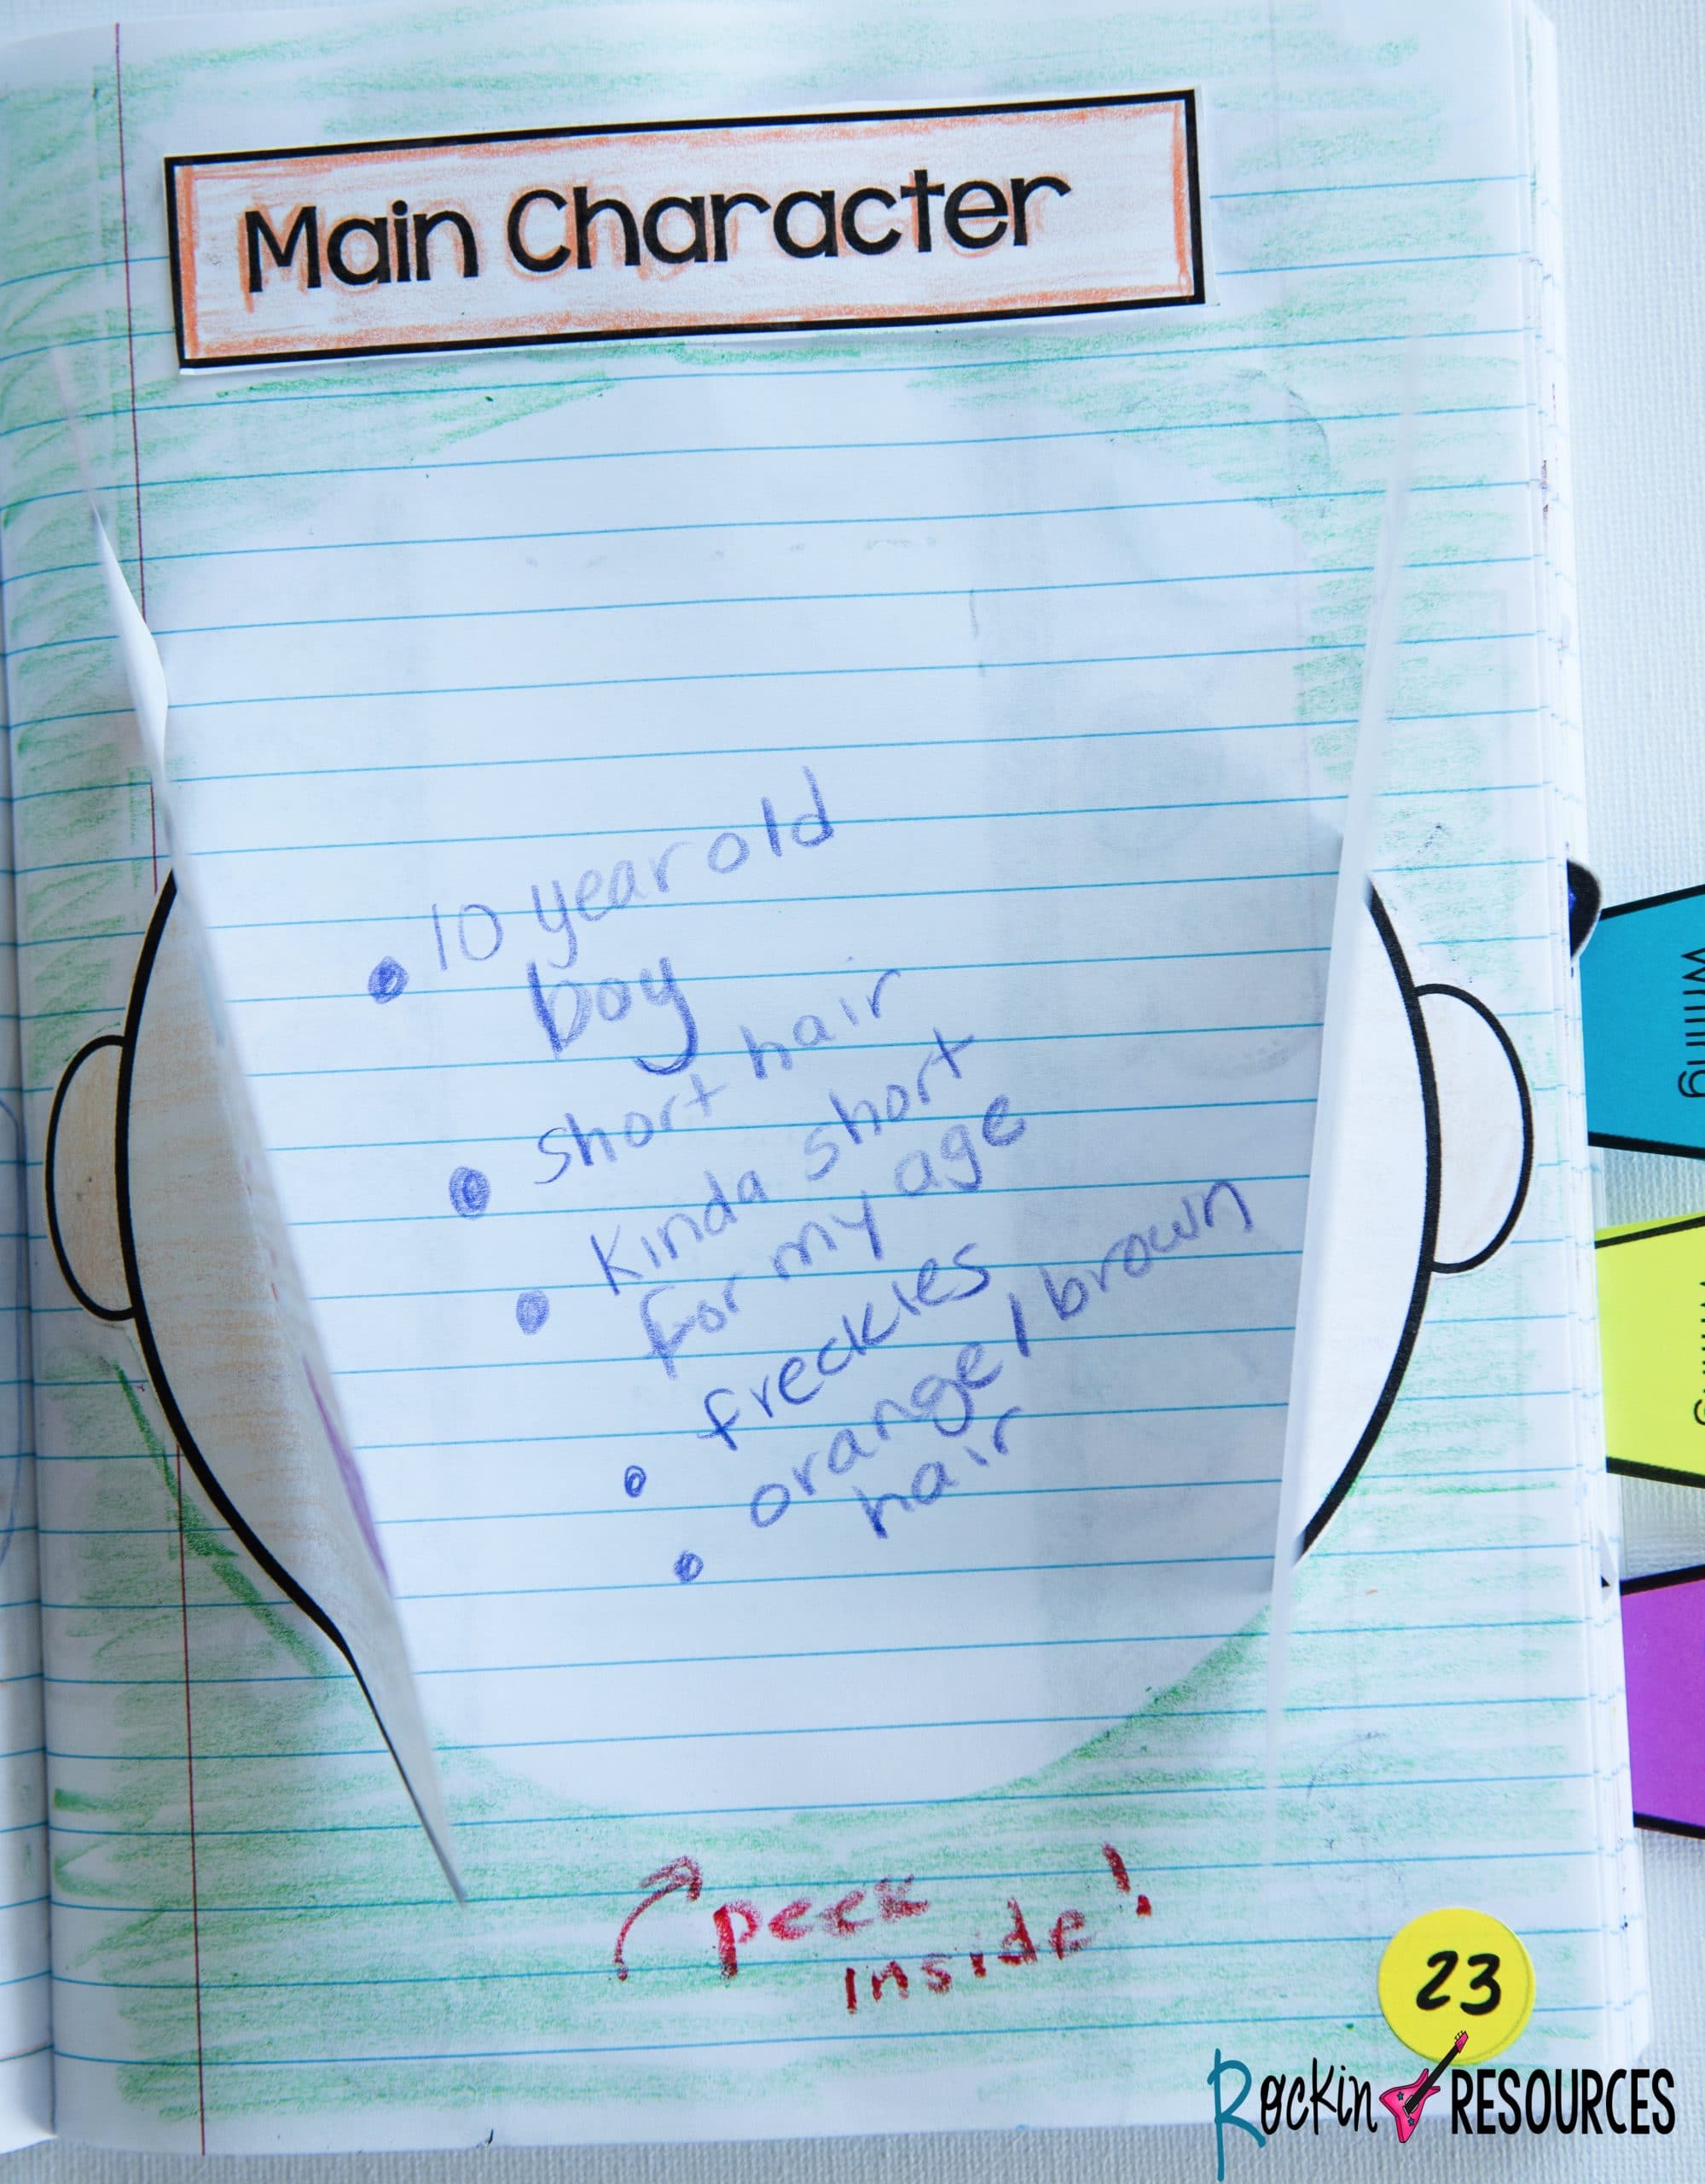 Main Character
• 10 year old
boy
• short hair
• Kinda short
for my age
• freckles
• orange/brown
hair
peek
inside!
23
Rockin RESOURCES
Writing